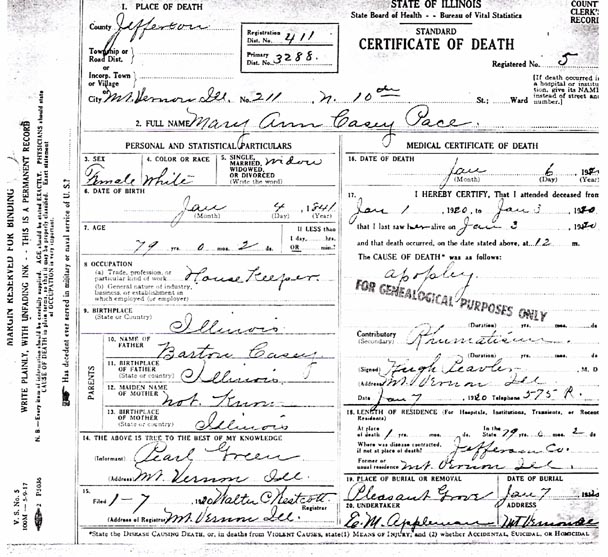 1. PLACE OF DEATH
County Jefferson
Township or
Road Dist.
or
Incorp. Town
or
Village
or
City Mt. Vernon Ill. No. 211 N. 10th St.; Ward
Registration
Dist. No. 411
Primary
Dist. No. 3288
STATE OF ILLINOIS
State Board of Health - - Bureau of Vital Statistics
STANDARD
CERTIFICATE OF DEATH
COUNT
CLERK'
RECOR
Registered No. 5
[If death occurred i
a hospital or institu
tion, give its NAM
instead of street an
number.]
2. FULL NAME Mary Ann Casey Pace.
PERSONAL AND STATISTICAL PARTICULARS
3. SEX
Female
4. COLOR OR RACE
White
5. SINGLE,
MARRIED,
WIDOWED,
OR DIVORCED
(Write the word)
Widow
6. DATE OF BIRTH
Jan 4 1841
(Month) (Day) (Year)
7. AGE
79 yrs. 0 mos. 2 ds.
If LESS than
1 day, hrs.
OR min.
8 OCCUPATION
(a) Trade, profession, or
particular kind of work
(b) General nature of industry,
business, or establishment in
which employed (or employer)
House Keeper.
9. BIRTHPLACE
(State or Country)
Illinois
PARENTS
10. NAME OF
FATHER
Barton Casey
11. BIRTHPLACE
OF FATHER
(State or country)
Illinois
12. MAIDEN NAME
OF MOTHER
not Known
13. BIRTHPLACE
OF MOTHER
(State or country)
Illinois
14. THE ABOVE IS TRUE TO THE BEST OF MY KNOWLEDGE
(Informant) Pearl Green
(Address) Mt. Vernon Ill.
15.
Filed 1-7 1920 Walter C.
Registrar
(Address of Registrar) Mt. Vernon Ill.
MEDICAL CERTIFICATE OF DEATH
16. DATE OF DEATH
Jan 6, 1920
(Month) (Day) (Year)
17. I HEREBY CERTIFY, That I attended deceased from
Jan 1, 1920, to Jan 3, 1920
that I last saw her alive on Jan 3 1920
and that death occurred, on the date stated above, at 12 m.
The CAUSE OF DEATH* was as follows:
apoplexy
FOR GENEALOGICAL PURPOSES ONLY
(Duration) yrs. mos. ds.
Contributory
(Secondary)
Rhumatism
(Duration) yrs. mos. ds.
(Signed) Hugh M. D
(Address) Mt. Vernon Ill
Date Jan 7, 1920 Telephone 575 R.
18. LENGTH OF RESIDENCE (For Hospitals, Institutions, Transients, or Recent
Residents)
At place
of death yrs. mos. ds. In the
State 79 yrs. 0 mos. 2 ds.
Where was disease contracted,
if not at place of death? Jefferson Co.
Former or
usual residence Mt. Vernon Ill.
19. PLACE OF BURIAL OR REMOVAL
Pleasant Grove
DATE OF BURIAL
Jan 7
20. UNDERTAKER
ADDRESS
*State the DISEASE CAUSING DEATH, or, in deaths from VIOLENT CAUSES, state (1) MEANS OF INJURY; and (2) whether ACCIDENTAL, SUICIDAL, OR HOMICIDAL
MARGIN RESERVED FOR BINDING
WRITE PLAINLY, WITH UNFADING INK - - THIS IS A PERMANENT RECORD
N. B.—Every item of information should be carefully supplied. AGE should be stated EXACTLY. PHYSICIANS should state
CAUSE OF DEATH in plain terms, so that it may be properly classified. Exact statement
of OCCUPATION is very important.
Has decedent ever served in military or naval service of U. S.?
V. S. No. 5